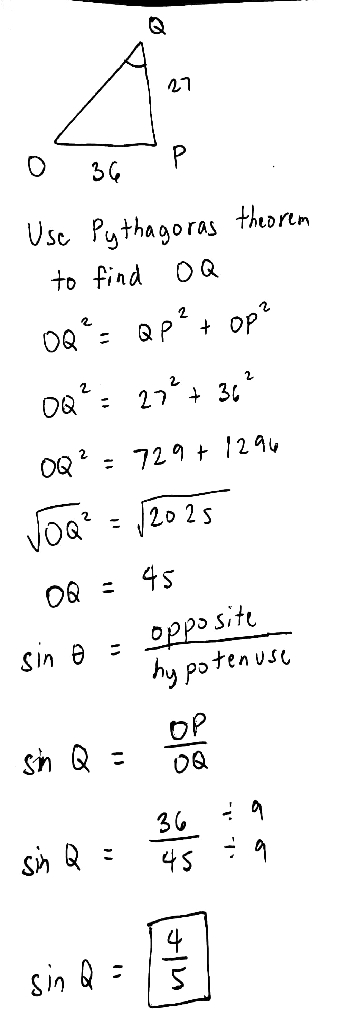 Q
27
O 36 P
Use Pythagoras theorem
to find OQ
OQ² = QP² + OP²
OQ² = 27² + 36²
OQ² = 729 + 1296
√OQ² = √2025
OQ = 45
sin θ = opposite / hypotenuse
sin Q = OP / OQ
sin Q = 36 ÷ 9 / 45 ÷ 9
sin Q = 4/5